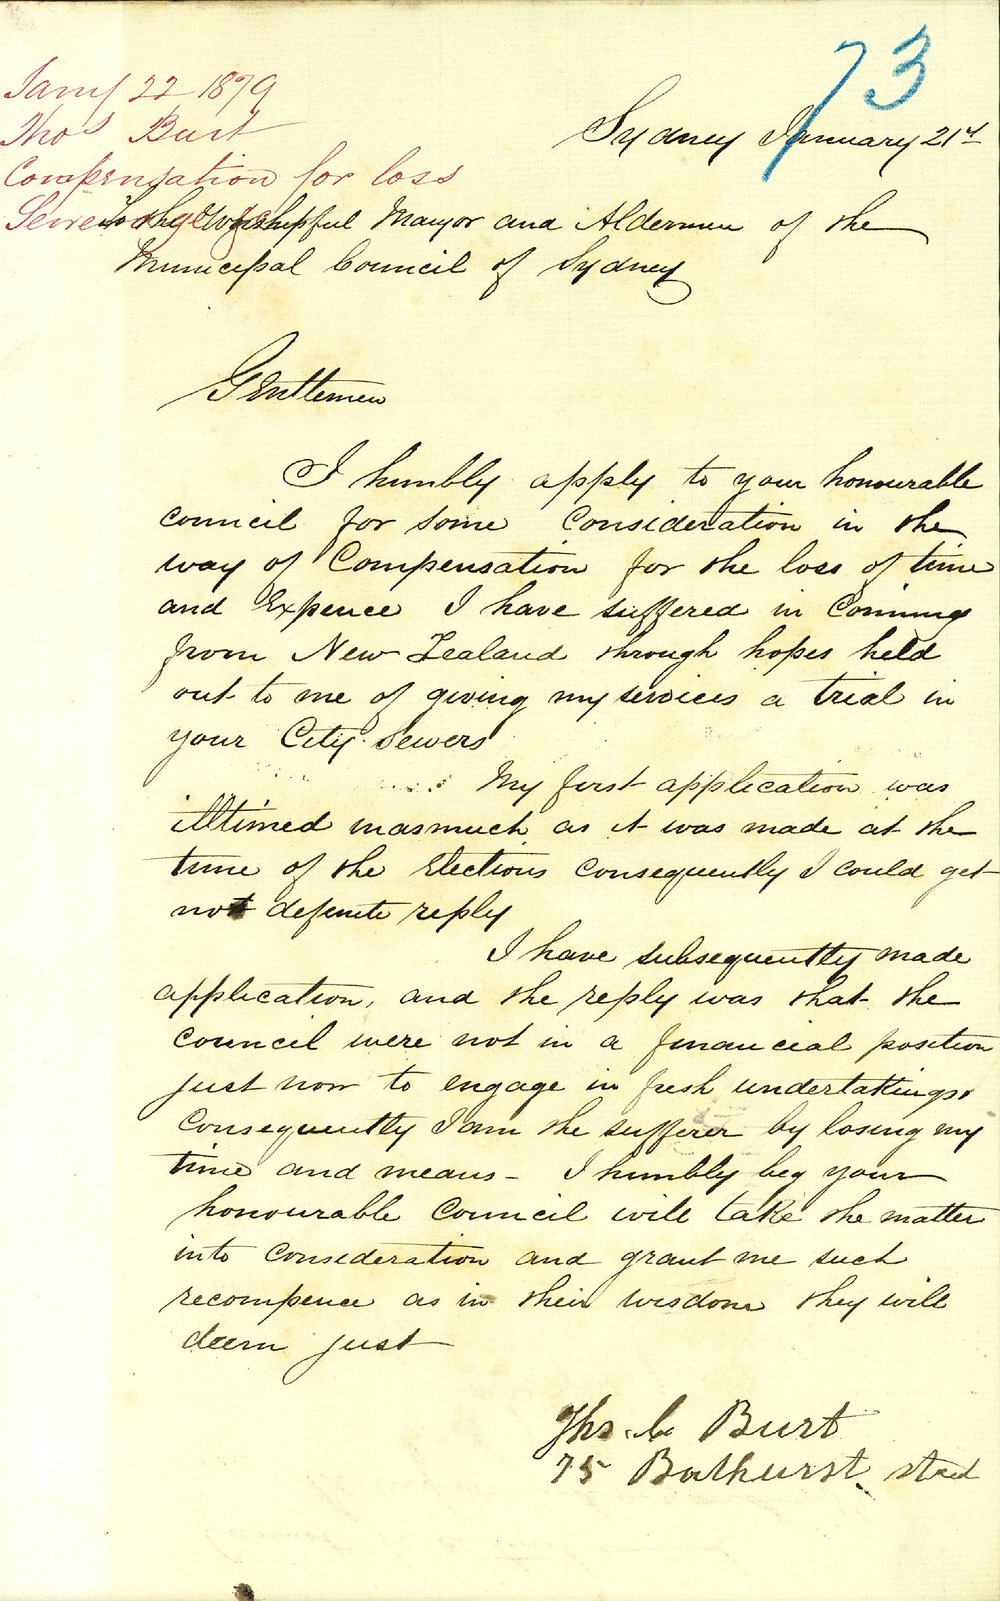 73
Jany 22 1879
Thos Burt
Compensation for loss
Sydney January 21st
To the Worshipful Mayor and Aldermen of the
Municipal Council of Sydney
Gentlemen
I humbly apply to your honourable
council for some Consideration in the
way of Compensation for the loss of time
and Expence I have suffered in Coming
from New Zealand through hopes held
out to me of giving my services a trial in
your City Sewers
My first application was
illtimed inasmuch as it was made at the
time of the Elections consequently I could get
not definite reply
I have subsequently made
application, and the reply was that the
council were not in a financial position
just now to engage in fresh undertakings,
Consequently I am the sufferer by losing my
time and means - I humbly beg your
honourable Council will take the matter
into consideration and grant me such
recompence as in their wisdom they will
deem just
Thos. C Burt
75 Bathurst street